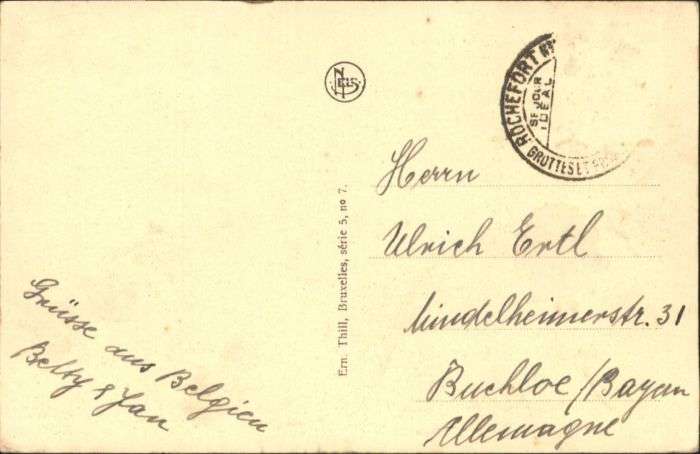 NELS
ROCHEFORT
SEJOUR
IDEAL
GROTTES ET
Herrn
Ulrich Ertl
Mindelheimerstr. 31
Buchloe / Bayern
Allemagne
Ern. Thill, Bruxelles, série 5, no 7.
Grüsse aus Belgien
Betty & Jan